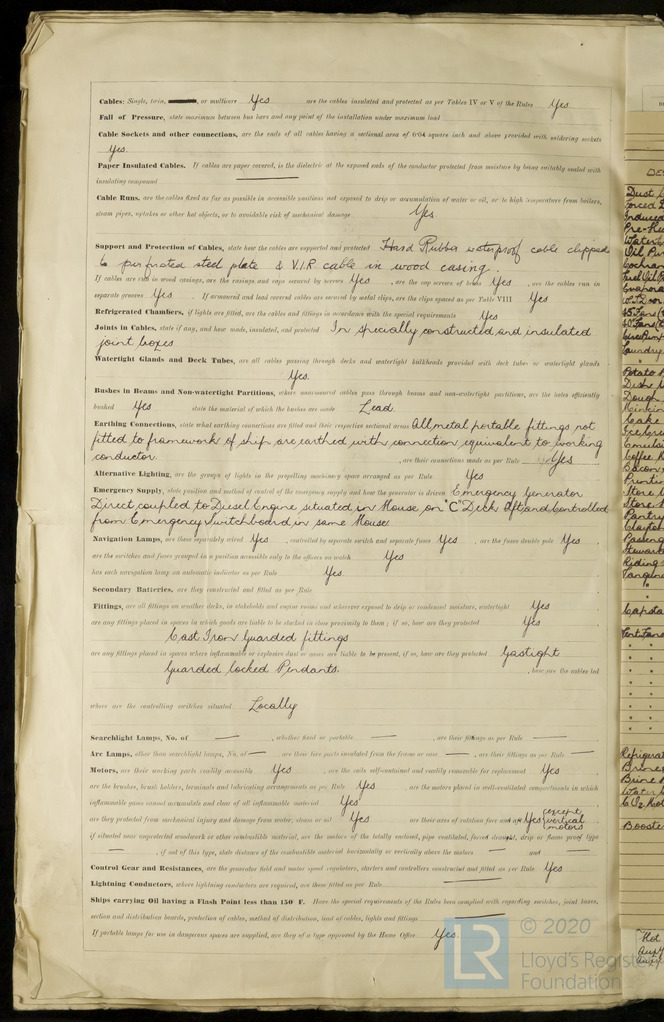 Cables: Single, twin, or multicore Yes are the cables insulated and protected as per Tables IV or V of the Rules Yes
Fall of Pressure, state maximum between bus bars and any point of the installation under maximum load
Cable Sockets and other connections, are the ends of all cables having a sectional area of 0·04 square inch and above provided with soldering sockets
Yes.
Paper Insulated Cables. If cables are paper covered, is the dielectric at the exposed ends of the conductor protected from moisture by being suitably sealed with
insulating compound
Cable Runs, are the cables fixed as far as possible in accessible positions not exposed to drip or accumulation of water or oil, or to high temperatures from boilers,
steam pipes, uptakes or other hot objects, or to avoidable risk of mechanical damage Yes
Support and Protection of Cables, state how the cables are supported and protected Hard Rubber waterproof cable clipped
to perforated steel plate & V.I.R cable in wood casing.
If cables are run in wood casings, are the casings and caps secured by screws Yes , are the cap screws of brass Yes , are the cables run in
separate grooves Yes . If armoured and lead covered cables are secured by metal clips, are the clips spaced as per Table VIII Yes
Refrigerated Chambers, if lights are fitted, are the cables and fittings in accordance with the special requirements Yes
Joints in Cables, state if any, and how made, insulated, and protected In specially constructed and insulated
joint boxes
Watertight Glands and Deck Tubes, are all cables passing through decks and watertight bulkheads provided with deck tubes or watertight glands
Yes.
Bushes in Beams and Non-watertight Partitions, where unarmoured cables pass through beams and non-watertight partitions, are the holes efficiently
bushed Yes state the material of which the bushes are made Lead.
Earthing Connections, state what earthing connections are fitted and their respective sectional areas All metal portable fittings not
fitted to framework of ship are earthed with connection equivalent to working
conductor. , are their connections made as per Rule Yes
Alternative Lighting, are the groups of lights in the propelling machinery space arranged as per Rule Yes
Emergency Supply, state position and method of control of the emergency supply and how the generator is driven Emergency Generator
Direct coupled to Diesel Engine situated in House on "C" Deck aft, and Controlled
from Emergency Switchboard in same House
Navigation Lamps, are these separately wired Yes , controlled by separate switch and separate fuses Yes , are the fuses double pole Yes ,
are the switches and fuses grouped in a position accessible only to the officers on watch Yes
has each navigation lamp an automatic indicator as per Rule Yes.
Secondary Batteries, are they constructed and fitted as per Rule
Fittings, are all fittings on weather decks, in stokeholds and engine rooms and wherever exposed to drip or condensed moisture, watertight Yes
are any fittings placed in spaces in which goods are liable to be stacked in close proximity to them; if so, how are they protected Yes
Cast Iron Guarded fittings
are any fittings placed in spaces where inflammable or explosive dust or gases are liable to be present, if so, how are they protected Gastight
Guarded locked Pendants. , how are the cables led
where are the controlling switches situated Locally
Searchlight Lamps, No. of , whether fixed or portable , are their fittings as per Rule
Arc Lamps, other than searchlight lamps, No. of , are their live parts insulated from the frame or case , are their fittings as per Rule
Motors, are their working parts readily accessible Yes , are the coils self-contained and readily removable for replacement Yes ,
are the brushes, brush holders, terminals and lubricating arrangements as per Rule Yes , are the motors placed in well-ventilated compartments in which
inflammable gases cannot accumulate and clear of all inflammable material Yes
are they protected from mechanical injury and damage from water, steam or oil Yes , are their axes of rotation fore and aft Yes except vertical motors
if situated near unprotected woodwork or other combustible material, are the motors of the totally enclosed, pipe ventilated, forced draught, drip or flame proof type
, if not of this type, state distance of the combustible material horizontally or vertically above the motors and
Control Gear and Resistances, are the generator field and motor speed regulators, starters and controllers constructed and fitted as per Rule Yes
Lightning Conductors, where lightning conductors are required, are these fitted as per Rule
Ships carrying Oil having a Flash Point less than 150° F. Have the special requirements of the Rules been complied with regarding switches, joint boxes,
section and distribution boards, protection of cables, method of distribution, lead of cables, lights and fittings
If portable lamps for use in dangerous spaces are supplied, are they of a type approved by the Home Office Yes.
LR © 2020
Lloyd's Register
Foundation